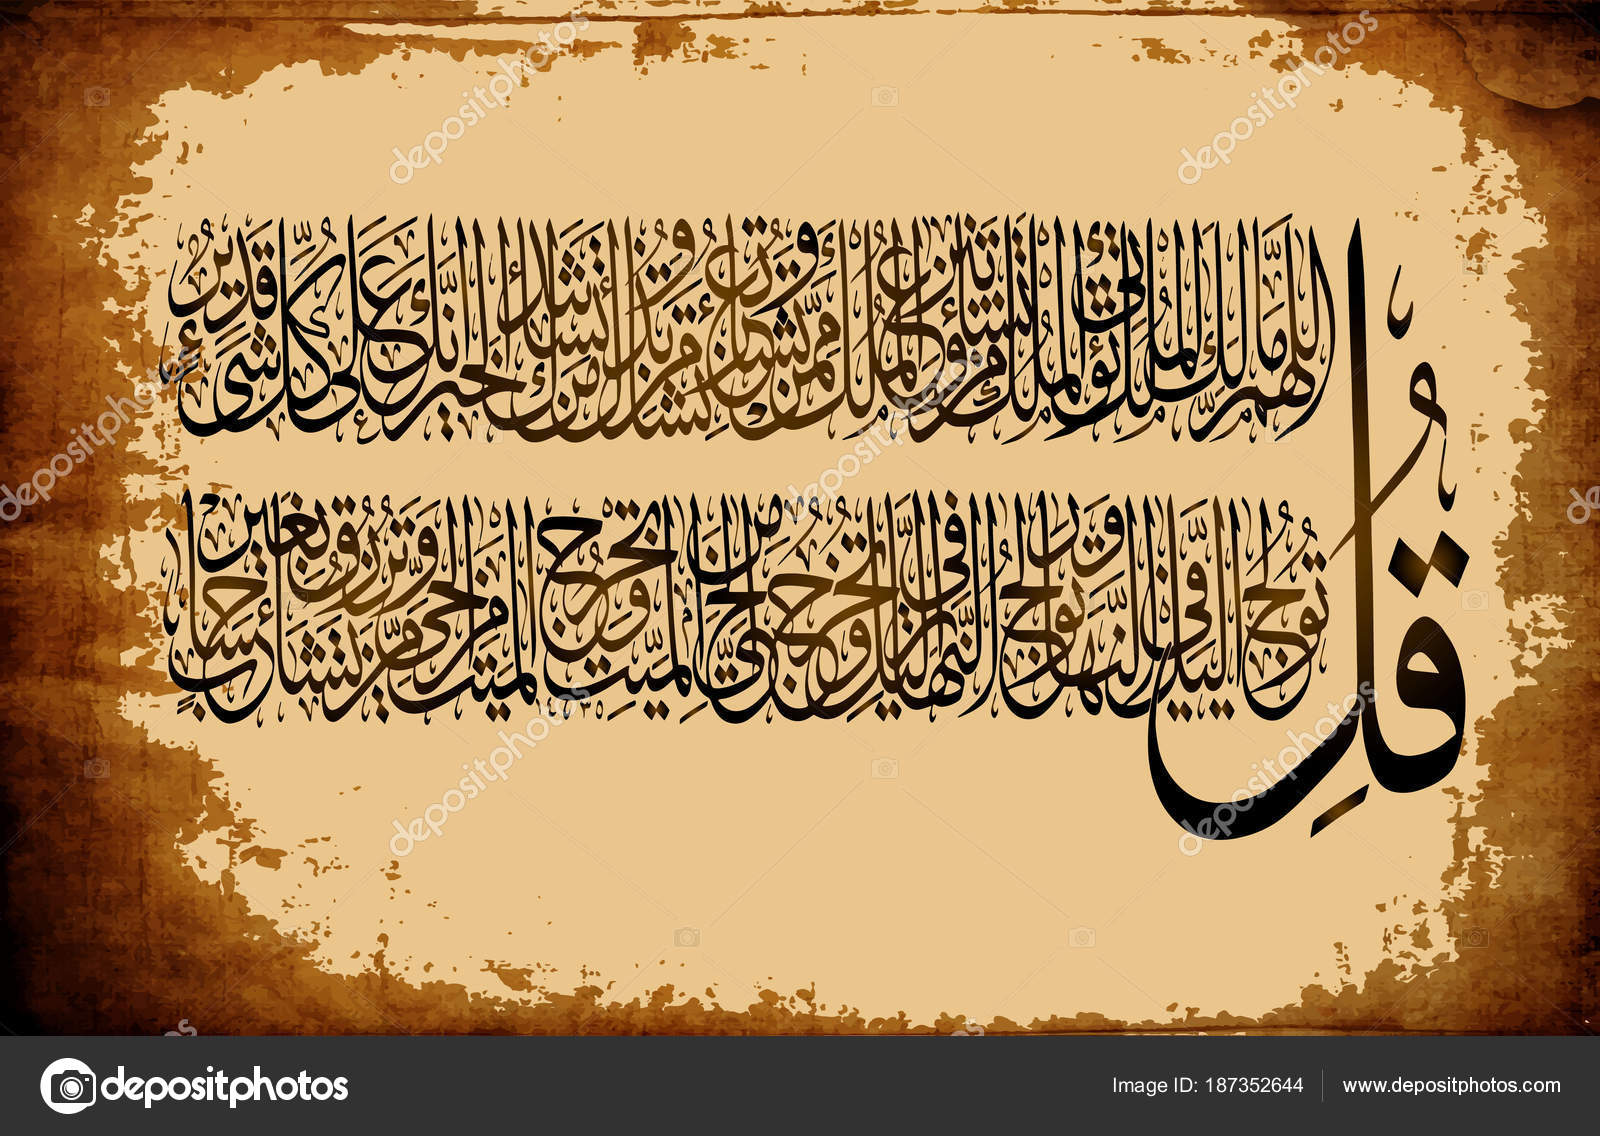 قُلِ
اللَّهُمَّ مَالِكَ الْمُلْكِ تُؤْتِي الْمُلْكَ مَنْ تَشَاءُ وَتَنْزِعُ الْمُلْكَ مِمَّنْ تَشَاءُ وَتُعِزُّ مَنْ تَشَاءُ وَتُذِلُّ مَنْ تَشَاءُ بِيَدِكَ الْخَيْرُ إِنَّكَ عَلَى كُلِّ شَيْءٍ قَدِيرٌ
تُولِجُ اللَّيْلَ فِي النَّهَارِ وَتُولِجُ النَّهَارَ فِي اللَّيْلِ وَتُخْرِجُ الْحَيَّ مِنَ الْمَيِّتِ وَتُخْرِجُ الْمَيِّتَ مِنَ الْحَيِّ وَتَرْزُقُ مَنْ تَشَاءُ بِغَيْرِ حِسَابٍ
١٤٣٥
depositphotos
Image ID: 187352644 www.depositphotos.com